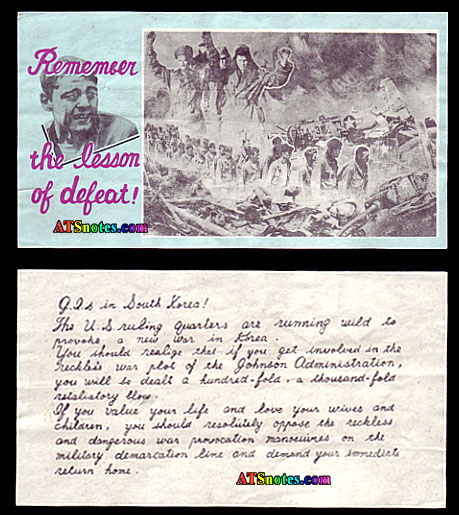 Remember
the lesson
of defeat!
ATSnotes.com
G.I.s in South Korea!
The U.S. ruling quarters are running wild to
provoke a new war in Korea.
You should realize that if you get involved in the
reckless war plot of the Johnson Administration,
you will be dealt a hundred-fold, a thousand-fold
retaliatory blow.
If you value your life and love your wives and
children, you should resolutely oppose the reckless
and dangerous war provocation manoeuvres on the
military demarcation line and demand your immediate
return home.
ATSnotes.com